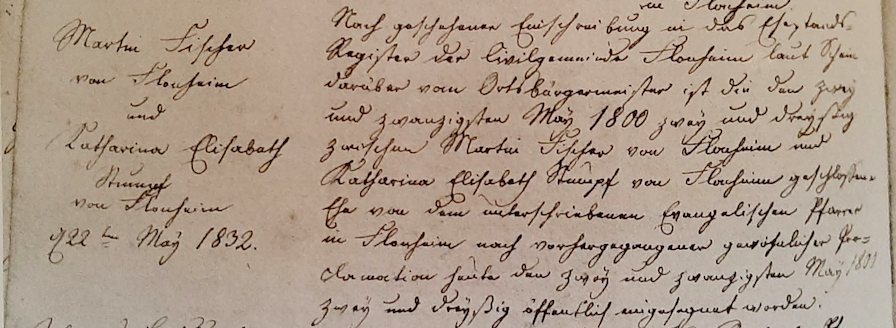 in Flonheim.
Martin Fischer
von Flonheim
und
Katharina Elisabeth
Stumpf
von Flonheim
d 22ten May 1832.
Nach geschehener Einschreibung in das Ehestands-
Register der Civilgemeinde Flonheim laut Schein
darüber vom Ortsbürgermeister ist die den zwey
und zwanzigsten May 1800 zwey und dreyßig
zwischen Martin Fischer von Flonheim und
Katharina Elisabeth Stumpf von Flonheim geschlossene
Ehe von dem unterschriebenen Evangelischen Pfarrer
in Flonheim nach vorhergegangener gewöhnlicher Pro-
clamation heute den zwey und zwanzigsten May 1800
zwey und dreyßig öffentlich eingesegnet worden.